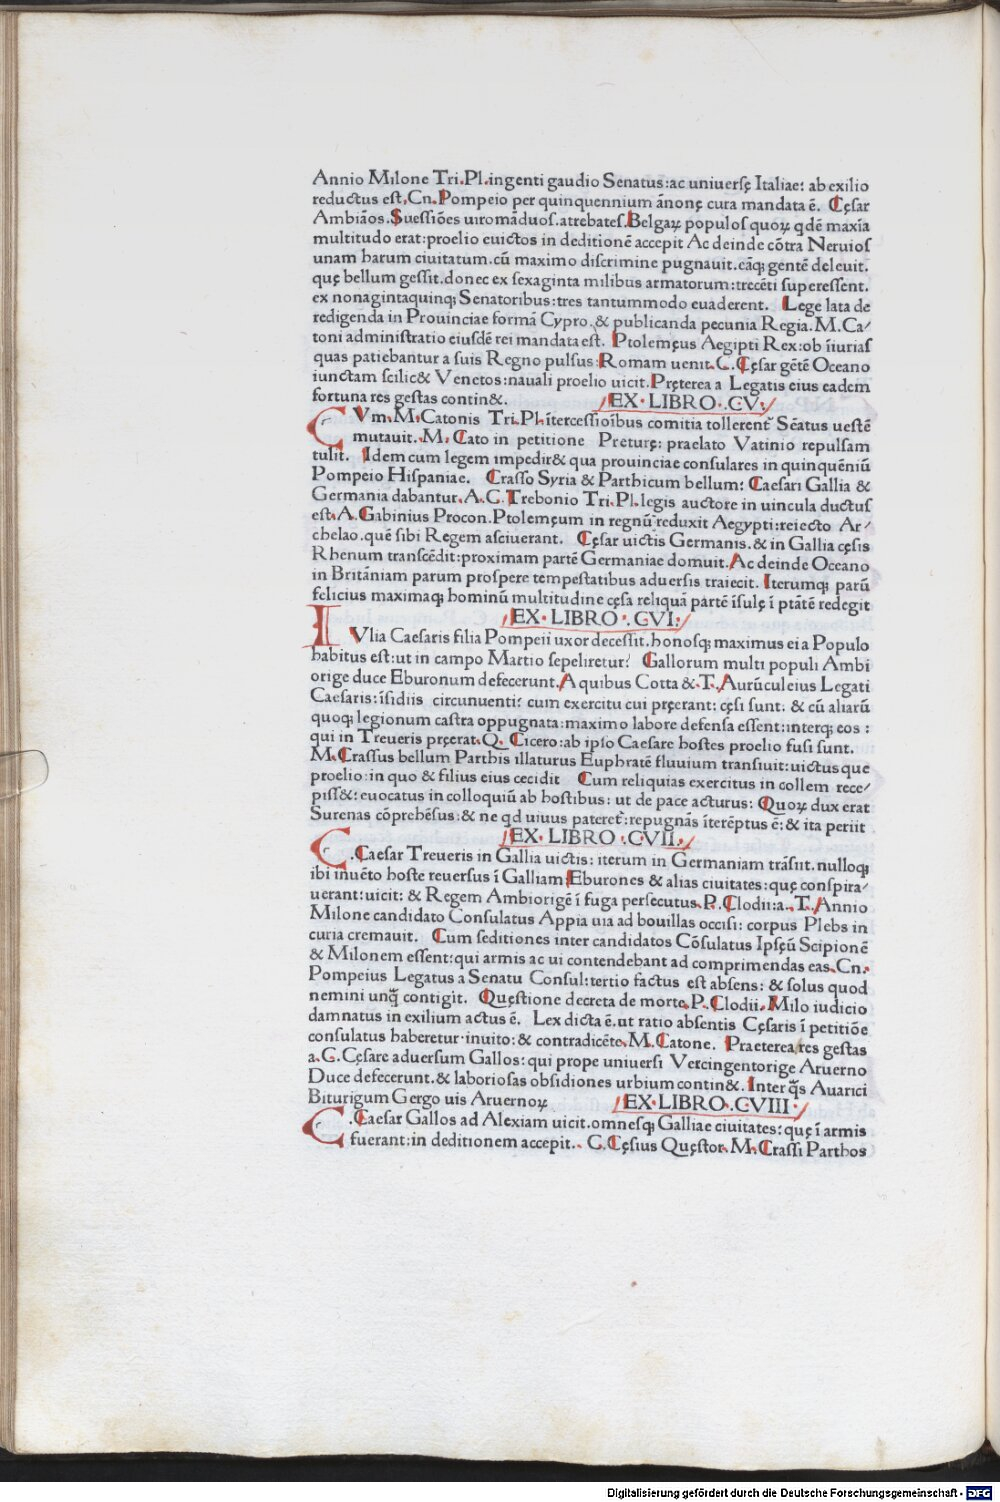 Annio Milone Tri.Pl.ingenti gaudio Senatus:ac uniuersę Italiae: ab exilio
reductus est.Cn.Pompeio per quinquennium ānonę cura mandata ē. Cęsar
Ambiāos.Suessiões uiromāduos.atrebates.Belgaꝝ populos quoꝝ qdē maxīa
multitudo erat:proelio euictos in deditionē accepit Ac deinde cōtra Neruios
unam harum ciuitatum.cū maximo discrimine pugnauit.eāq; gentē deleuit.
quę bellum gessit.donec ex sexaginta milibus armatorum:trecēti superessent.
ex nonagintaquinq; Senatoribus:tres tantummodo euaderent. Lege lata de
redigenda in Prouinciae formā Cypro.& publicanda pecunia Regia.M.Ca⸗
toni administratio eiusdē rei mandata est. Ptolemęus Aegipti Rex:ob īiurias
quas patiebantur a suis Regno pulsus:Romam uenit.C.Cęsar gētē Oceano
iunctam scilic& Venetos:nauali proelio uicit.Pręterea a Legatis eius eadem
fortuna res gestas contin&. EX.LIBRO.CV.
CVm.M.Catonis Tri.Pl.ītercessioībus comitia tollerent̄ Sēatus uestē
mutauit.M.Cato in petitione Preturę: praelato Vatinio repulsam
tulit. Idem cum legem impedir& qua prouinciae consulares in quinquēniū
Pompeio Hispaniae. Crasso Syria & Parthicum bellum: Caesari Gallia &
Germania dabantur.A.C.Trebonio Tri.Pl.legis auctore in uincula ductus
est.A.Gabinius Procon.Ptolemęum in regnū reduxit Aegypti:reiecto Ar⸗
chelao.quē sibi Regem asciuerant. Cęsar uictis Germanis.& in Gallia cęsis
Rhenum transcēdit:proximam partē Germaniae domuit.Ac deinde Oceano
in Britāniam parum prospere tempestatibus aduersis traiecit. Iterumq; parū
felicius maximaq; hominū multitudine cęsa reliquā partē īsulę ī ptātē redegit
EX.LIBRO.CVI:
IVlia Caesaris filia Pompeii uxor decessit.honosq; maximus ei a Populo
habitus est:ut in campo Martio sepeliretur: Gallorum multi populi Ambi
orige duce Eburonum defecerunt.A quibus Cotta &.T.Aurūculeius Legati
Caesaris:īsidiis circunuenti: cum exercitu cui pręerant: cęsi sunt. & cū aliarū
quoq; legionum castra oppugnata:maximo labore defensa essent:interq; eos :
qui in Treueris pręerat.Q. Cicero:ab ipso Caesare hostes proelio fusi sunt.
M.Crassus bellum Parthis illaturus Euphratē fluuium transiuit:uictus que
proelio:in quo & filius eius cecidit Cum reliquias exercitus in collem rece⸗
piss&:euocatus in colloquiū ab hostibus: ut de pace acturus: Quoꝝ dux erat
Surenas cōprehēsus:& ne qd uiuus pateret̄:repugnās īterēptus ē:& ita periit
EX.LIBRO.CVII.
C.Caesar Treueris in Gallia uictis: iterum in Germaniam trāsiit.nulloq;
ibi inuēto hoste reuersus ī Galliam Eburones & alias ciuitates:quę conspira⸗
uerant:uicit: & Regem Ambiorigē ī fuga persecutus.P.Clodii:a.T.Annio
Milone candidato Consulatus Appia uia ad bouillas occisi: corpus Plebs in
curia cremauit. Cum seditiones inter candidatos Cōsulatus Ipsęū Scipionē
& Milonem essent:qui armis ac ui contendebant ad comprimendas eas.Cn.
Pompeius Legatus a Senatu Consul:tertio factus est absens: & solus quod
nemini unq̄ contigit. Quęstione decreta de morte.P.Clodii.Milo iudicio
damnatus in exilium actus ē. Lex dicta ē.ut ratio absentis Cęsaris ī petitiōe
consulatus haberetur inuito:& contradicēte.M.Catone. Praeterea res gestas
a.C.Cęsare aduersum Gallos:qui prope uniuersi Vercingentorige Aruerno
Duce defecerunt.& laboriosas obsidiones urbium contin&.Inter q̄s Auarici
Biturigum Gergo uis Aruernoꝝ EX.LIBRO.CVIII.
C.Caesar Gallos ad Alexiam uicit.omnesq; Galliae ciuitates:quę ī armis
fuerant:in deditionem accepit. C.Cęsius Quęstor.M.Crassi Parthos
Digitalisierung gefördert durch die Deutsche Forschungsgemeinschaft - DFG